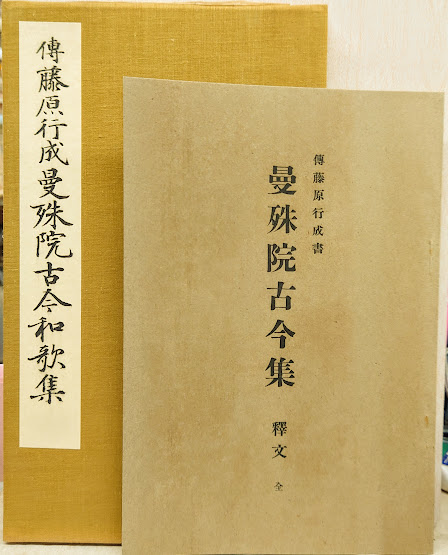 傳藤原行成曼殊院古今和歌集
傳藤原行成書
曼殊院古今集
釋文 全